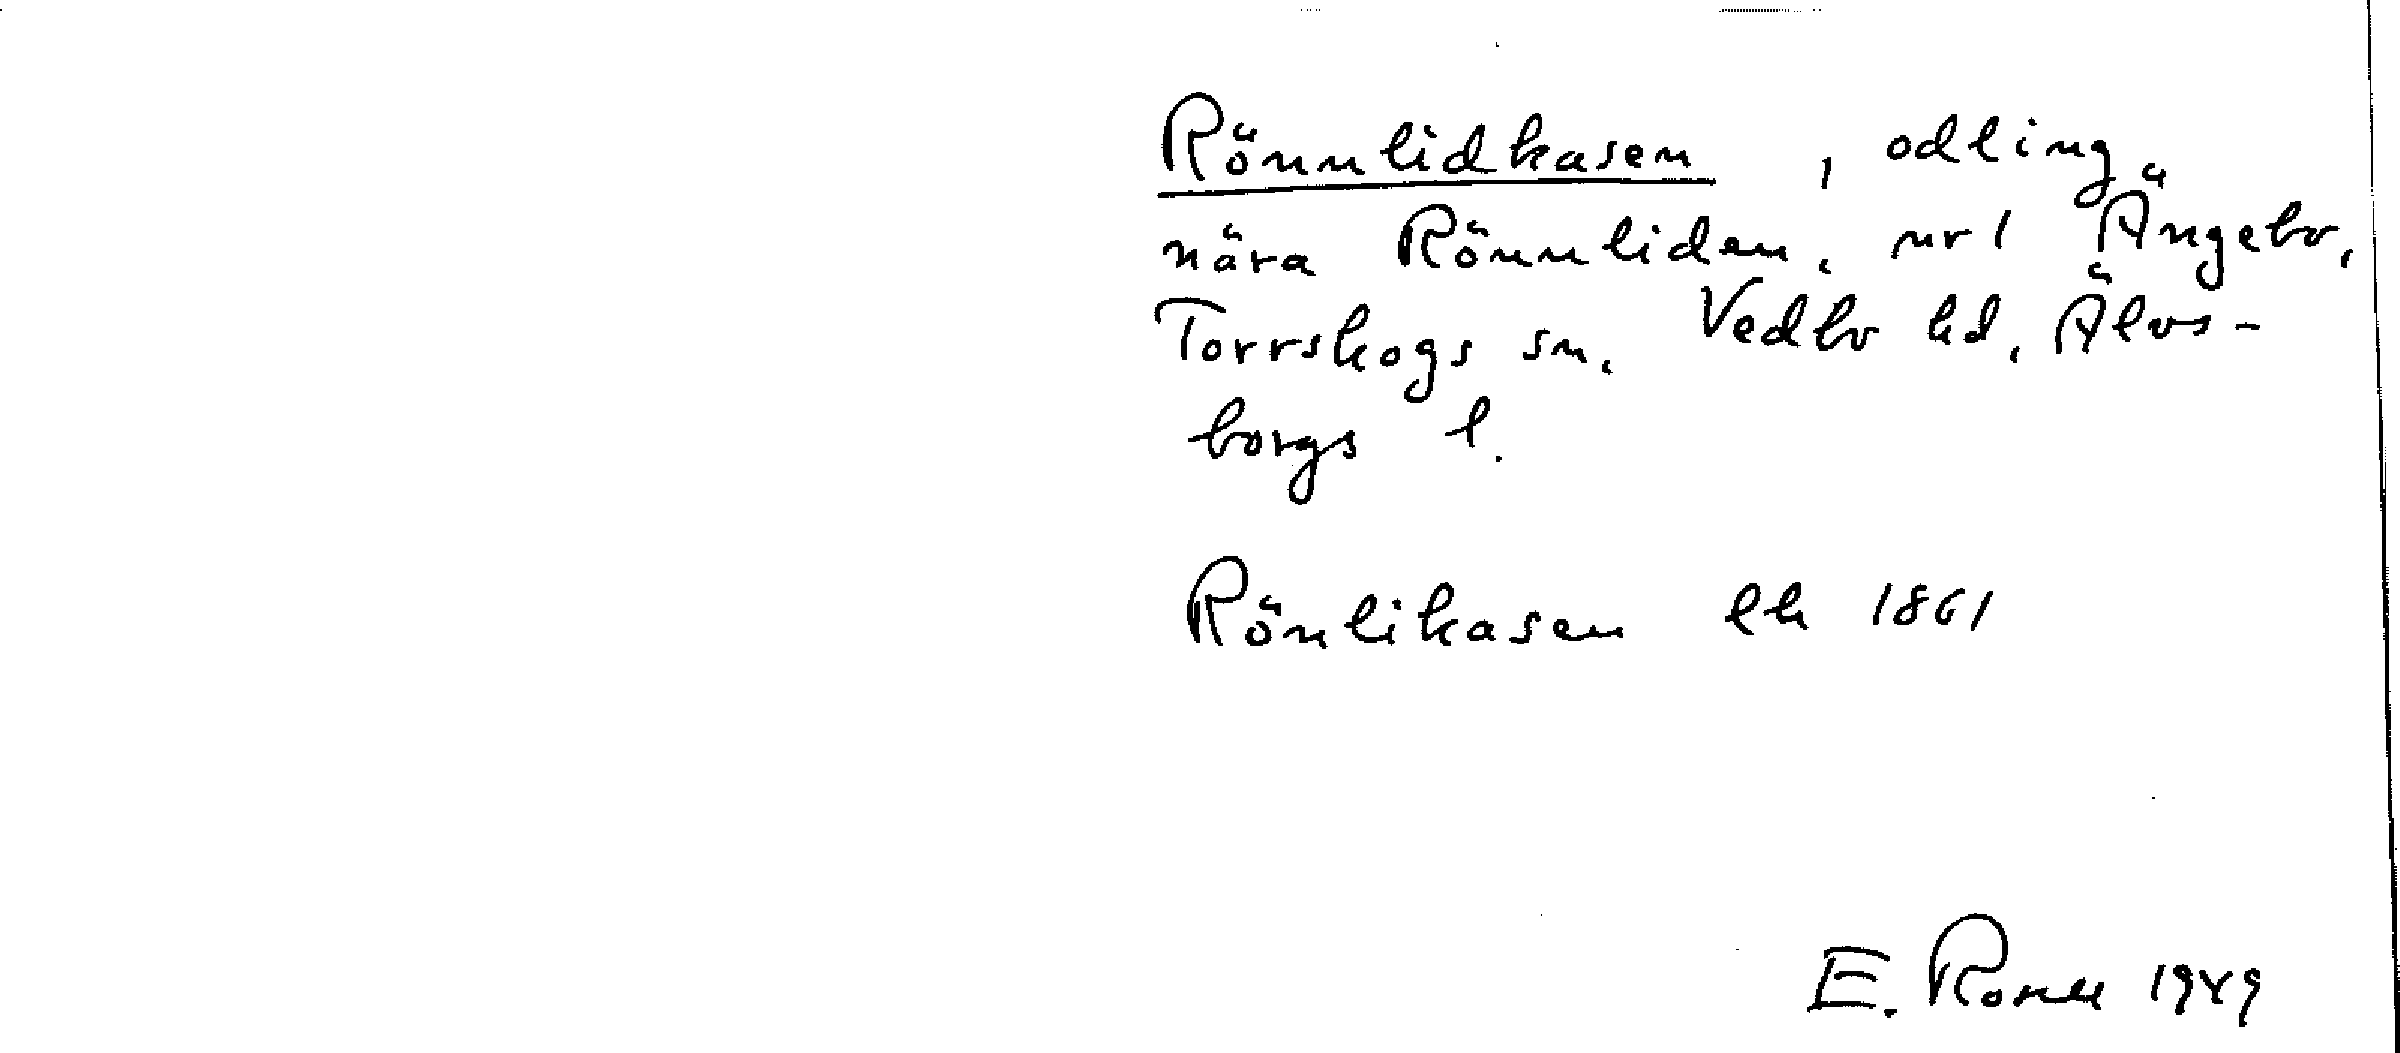 Rönnlidkasen, odling
nära Rönnliden, nr 1 Ängebo,
Torrskogs sn, Vedbo hd, Älvs-
borgs l.
Rönlikasen lk 1861
E. 1949